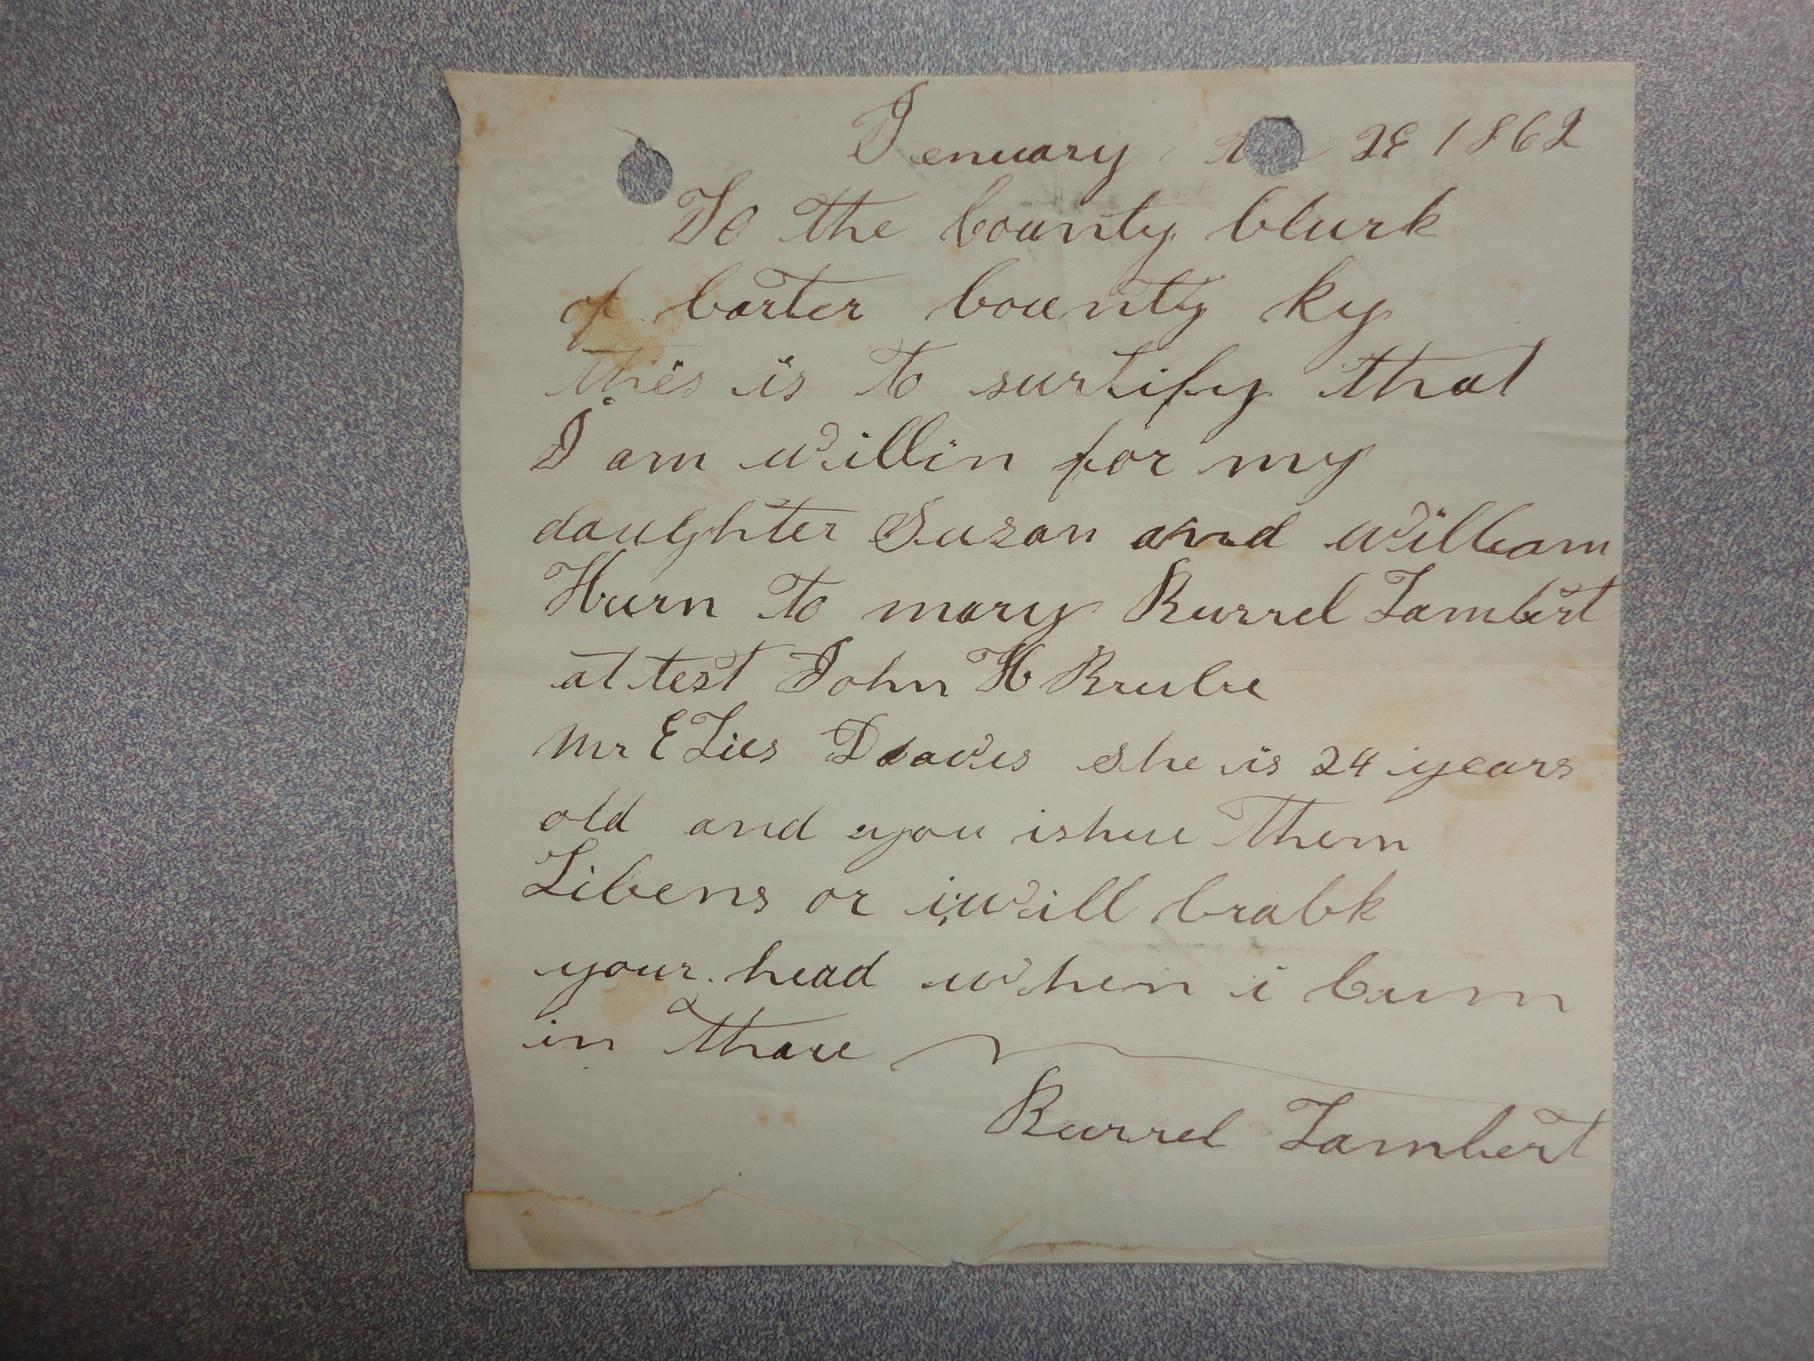 Jenuary the 28 1862
To the County Clurk
of Carter County Ky
this is to surtify that
I am willin for my
daughter Susan and William
Hurn to mary Burrel Lambert
attest John H Brube
Mr ELies Davis she is 24 years
old and you ishue them
Licens or i will crack
your head when i cum
in thare
Burrel Lambert